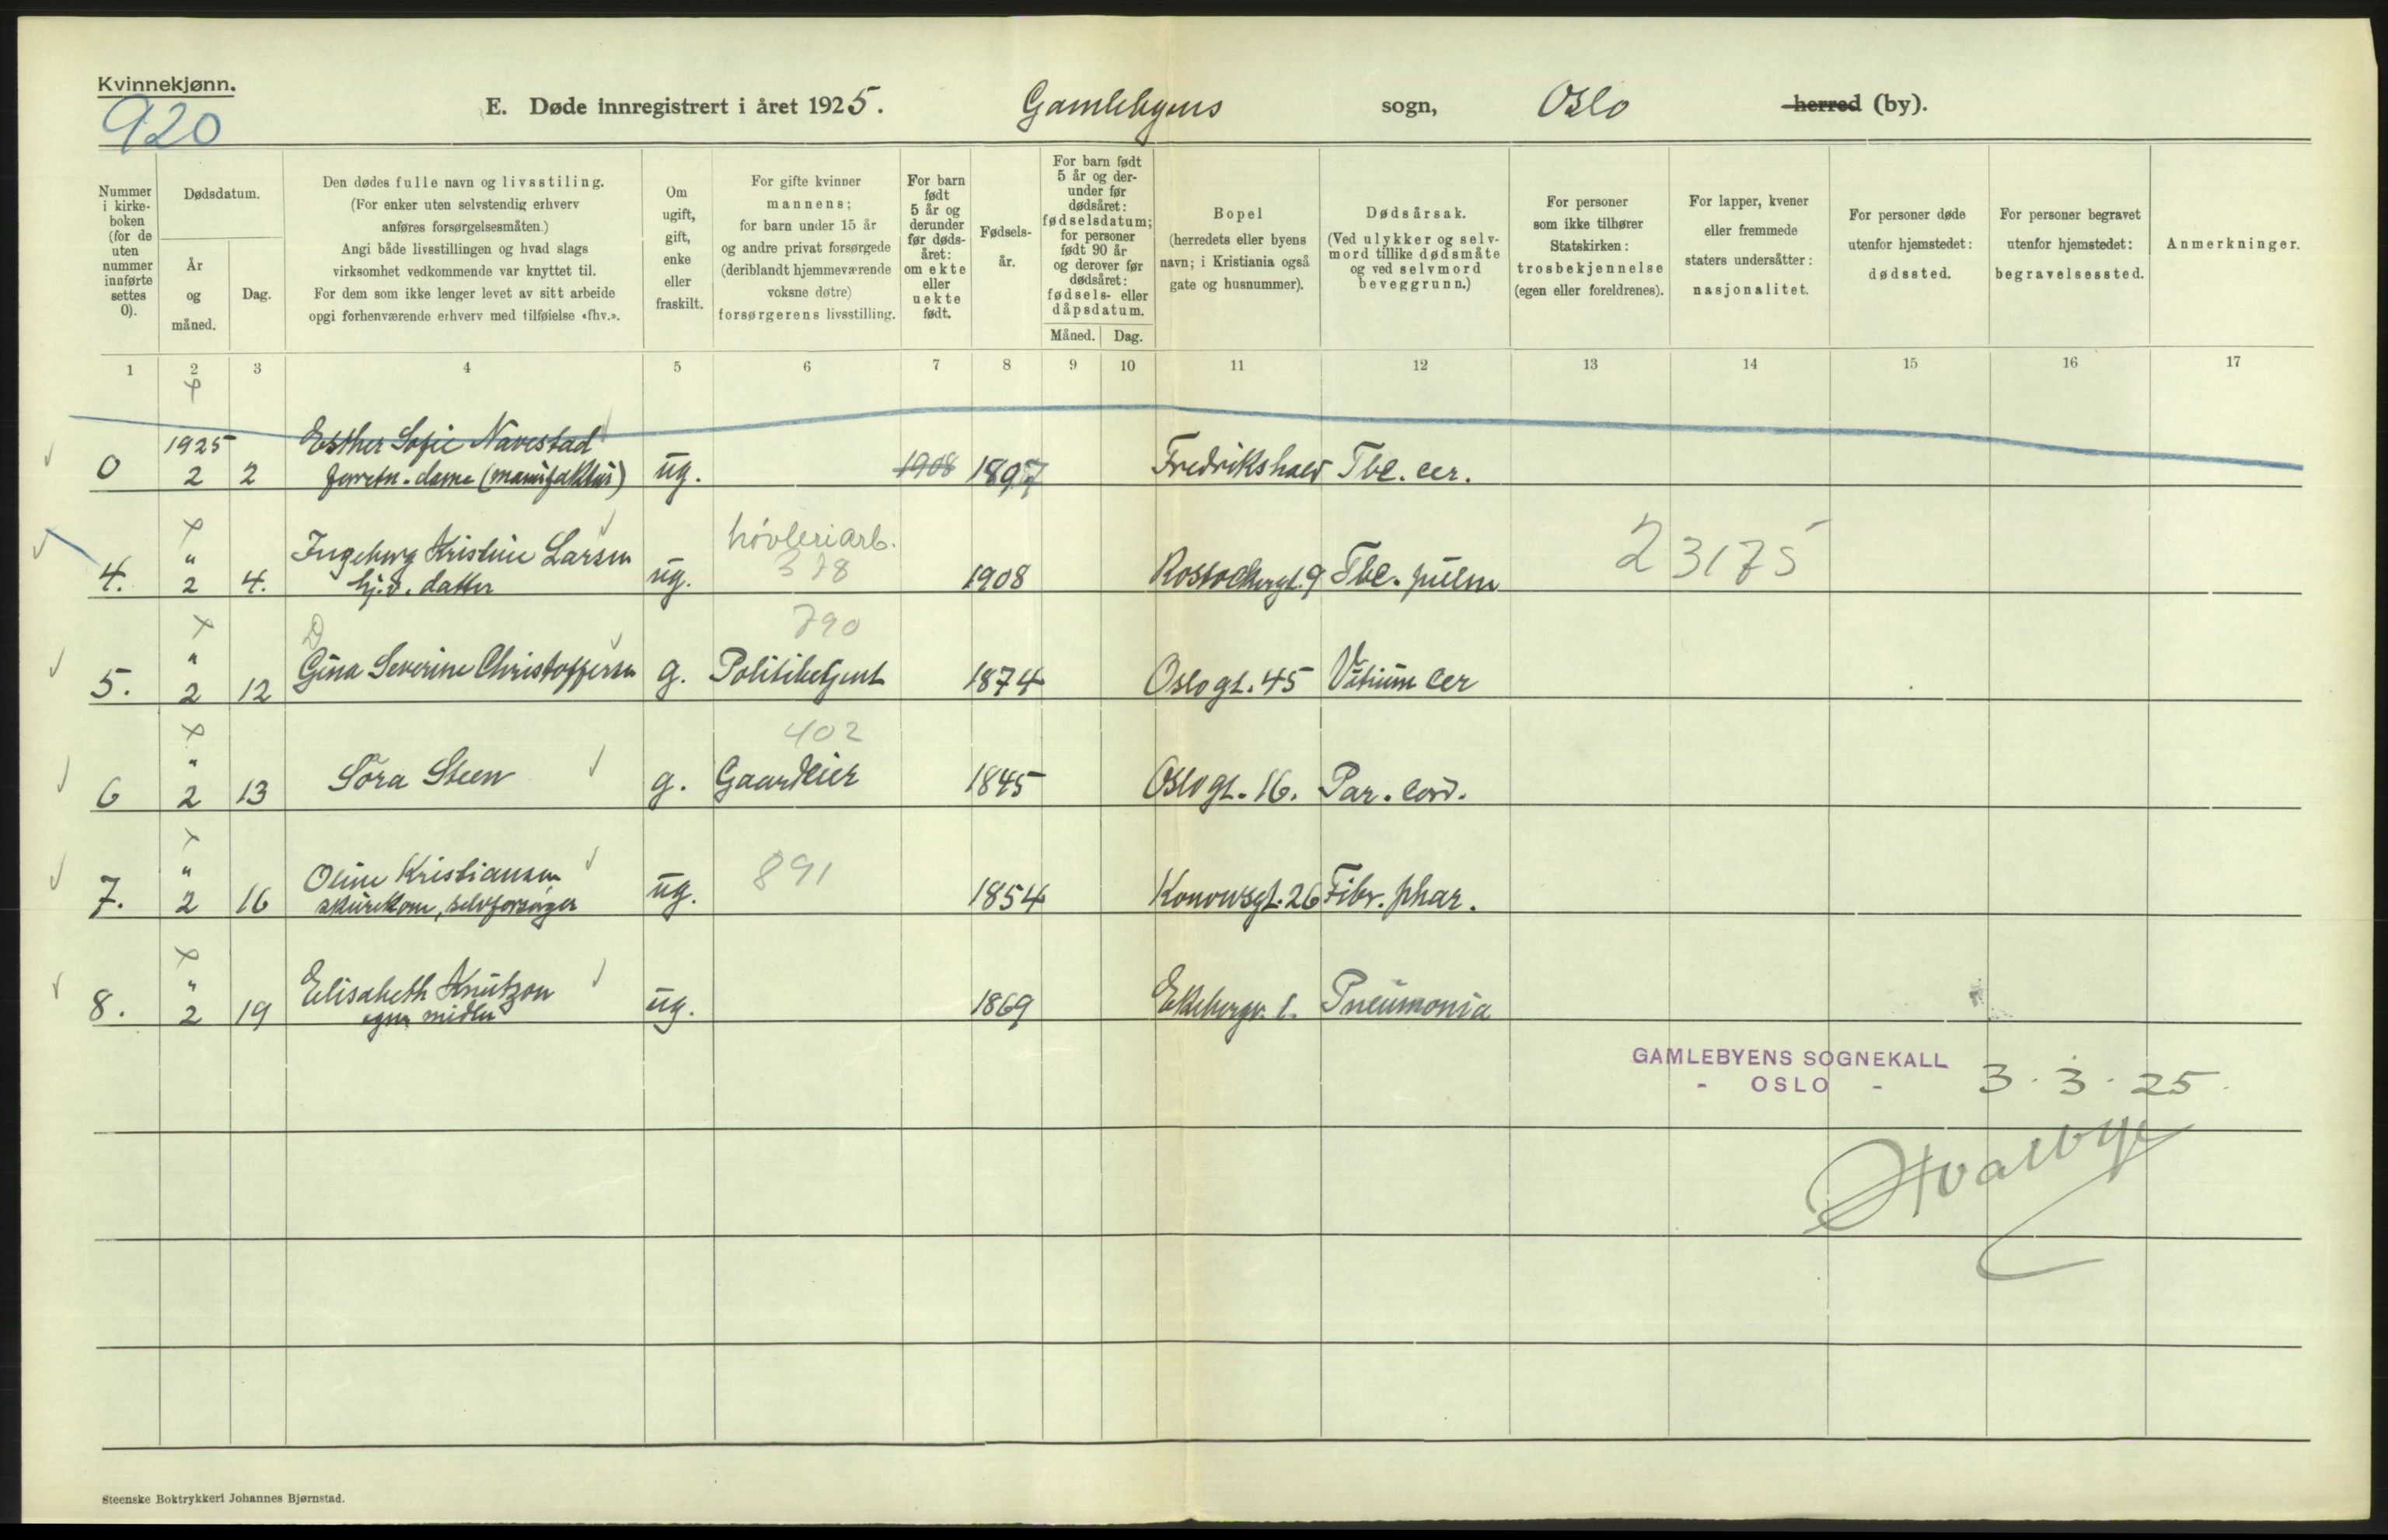 Kvinnekjønn.
920
E. Døde innregistrert i året 1925. Gamlebyens sogn, Oslo herred (by).
Nummer i kirke-boken (for de uten nummer innførte settes 0).
Dødsdatum.
År og måned.
Dag.
Den dødes fulle navn og livsstiling.
(For enker uten selvstendig erhverv
anføres forsørgelsesmåten.)
Angi både livsstillingen og hvad slags
virksomhet vedkommende var knyttet til.
For dem som ikke lenger levet av sitt arbeide
opgi forhenværende erhverv med tilføielse «fhv.».
Om ugift, gift, enke eller fraskilt.
For gifte kvinner
mannens;
for barn under 15 år
og andre privat forsørgede
(deriblandt hjemmeværende
voksne døtre)
forsørgerens livsstilling.
For barn født 5 år og derunder før døds-året: om ekte eller uekte født.
Fødsels-år.
For barn født 5 år og der-under før dødsåret: fødselsdatum; for personer født 90 år og derover før dødsåret: fødsels- eller dåpsdatum.
Måned. Dag.
Bopel
(herredets eller byens
navn; i Kristiania også
gate og husnummer).
Dødsårsak.
(Ved ulykker og selv-
mord tillike dødsmåte
og ved selvmord
beveggrunn.)
For personer
som ikke tilhører
Statskirken:
trosbekjennelse
(egen eller foreldrenes).
For lapper, kvener
eller fremmede
staters undersåtter:
nasjonalitet.
For personer døde
utenfor hjemstedet:
dødssted.
For personer begravet
utenfor hjemstedet:
begravelsessted.
Anmerkninger.
1 2 3 4 5 6 7 8 9 10 11 12 13 14 15 16 17
1925 Esther Sofie Navestad
0 2 2 forretn. dame (manufaktur) ug. 1908 1897 Fredrikshald Tbc. cer.
" Ingeborg Kristine Larsen høvleriarb.
4. 2 4. hj.v. datter ug. 378 1908 Rostockergt. 9 Tbc. pulm 23175
790
" Gina Severine Christoffersen
5. 2 12 g. Politibetjent 1874 Oslogt. 45 Vitium cer
402
" Sora Steen
6 2 13 g. Gaardeier 1845 Oslogt. 16. Par. cord.
" Oline Kristiansen 891
7. 2 16 skurekone, selvforsørger ug. 1854 Konowsgt. 26 Fibr. phar.
" Elisabeth Knutzon
8. 2 19 egne midler ug. 1869 Ekebergv. 1. Pneumonia
GAMLEBYENS SOGNEKALL
- OSLO -
3.3.25.
Hvalbye
Steenske Boktrykkeri Johannes Bjørnstad.